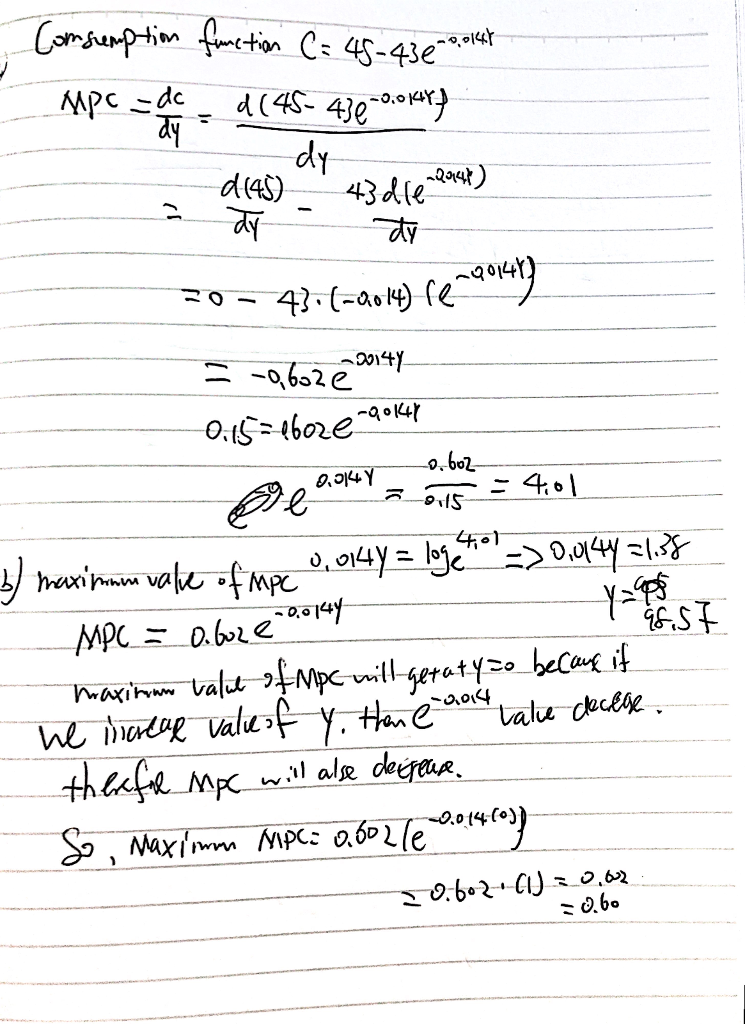 Comsumption function C = 45-43e^-0.014Y
MPC = dc/dy = d(45-43e^-0.014Y)/dy
= d(45)/dy - 43d(e^-0.014Y)/dy
= 0 - 43.(-0.014) (e^-0.014Y)
= -0,602e^-0014Y
0.15 = 0602e^-0.014Y
e^0.014Y = 0.602/0.15 = 4.01
0,014Y = loge^4,01 => 0,014Y = 1.38
b) maximum value of MPC
Y = 98.57
MPC = 0.602e^-0.014y
maximum value of MPC will get at y=0 because if
we increase value of Y. then e^-0.014 value decrease.
therefore MPC will alse decrease.
So, Maximum MPC = 0.602(e^-0.014(0))
= 0.602.(1) = 0.602
= 0.60